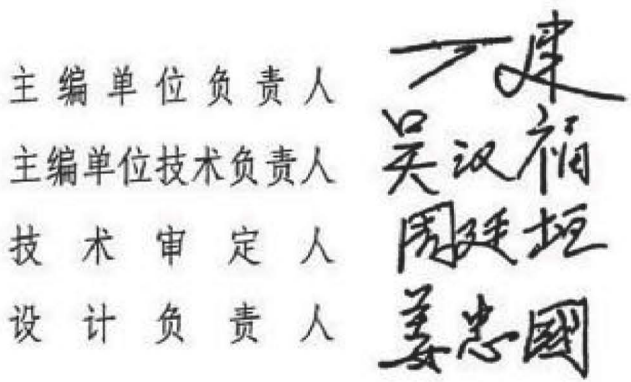 主编单位负责人 丁建
主编单位技术负责人 吴汉福
技术审定人 周廷垣
设计负责人 姜忠国